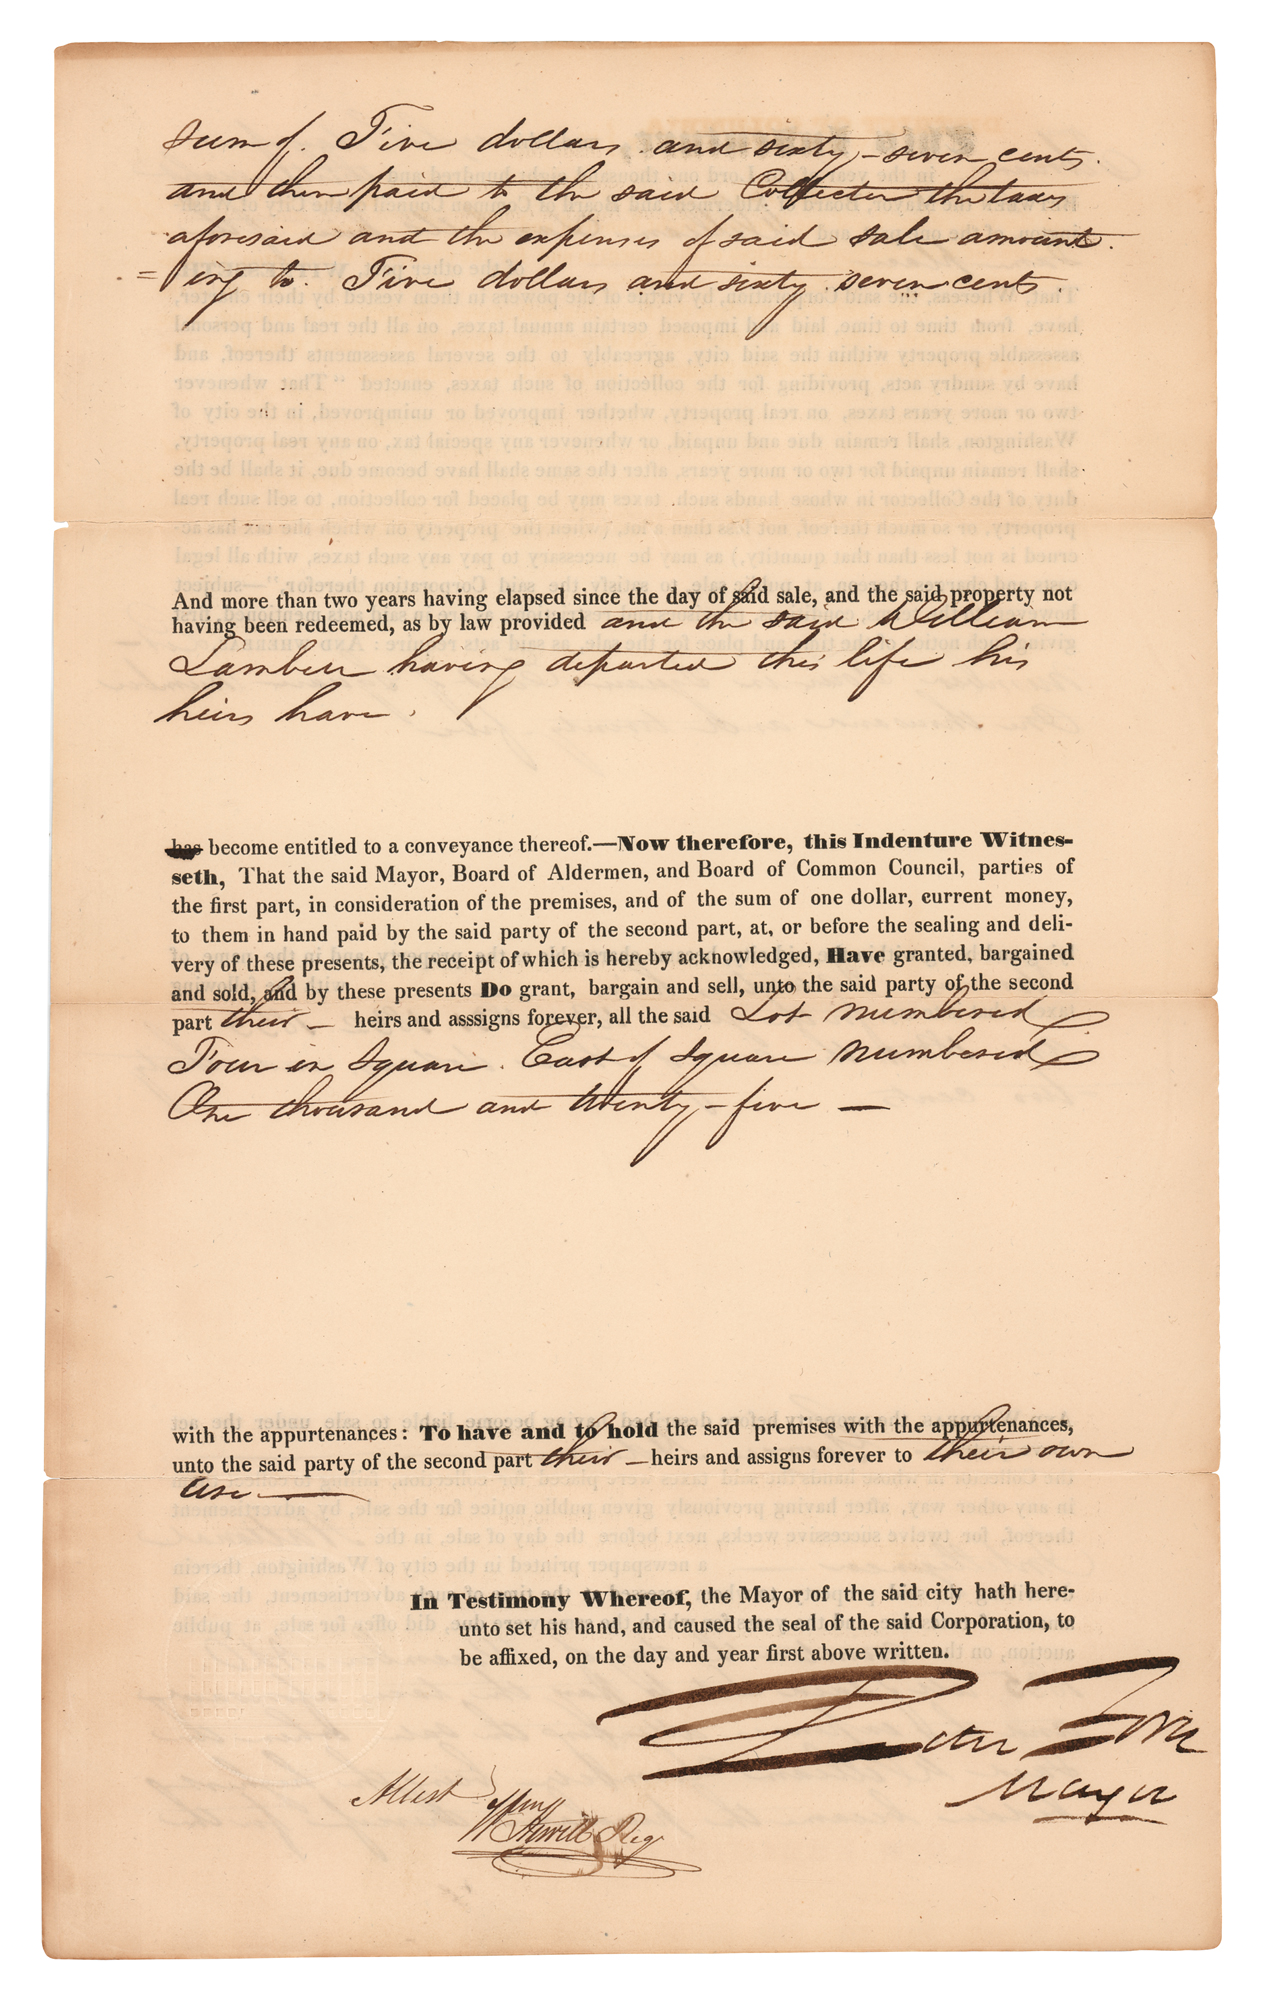 sum of. Five dollars and sixty-seven cents.
and then paid to the said Collector the taxes
aforesaid and the expenses of said sale amount.
= ing to. Five dollars and sixty seven cents.
And more than two years having elapsed since the day of said sale, and the said property not
having been redeemed, as by law provided and the said William
Lambert having departed this life his
heirs have.
has become entitled to a conveyance thereof.—Now therefore, this Indenture Witnes-
seth, That the said Mayor, Board of Aldermen, and Board of Common Council, parties of
the first part, in consideration of the premises, and of the sum of one dollar, current money,
to them in hand paid by the said party of the second part, at, or before the sealing and deli-
very of these presents, the receipt of which is hereby acknowledged, Have granted, bargained
and sold, and by these presents Do grant, bargain and sell, unto the said party of the second
part their — heirs and asssigns forever, all the said Lot numbered
Four in Square. East of Square numbered
One thousand and twenty-five —
with the appurtenances: To have and to hold the said premises with the appurtenances,
unto the said party of the second part their — heirs and assigns forever to their own
use —
In Testimony Whereof, the Mayor of the said city hath here-
unto set his hand, and caused the seal of the said Corporation, to
be affixed, on the day and year first above written.
Peter Force
Mayor
Attest
Wm Hewitt Reg